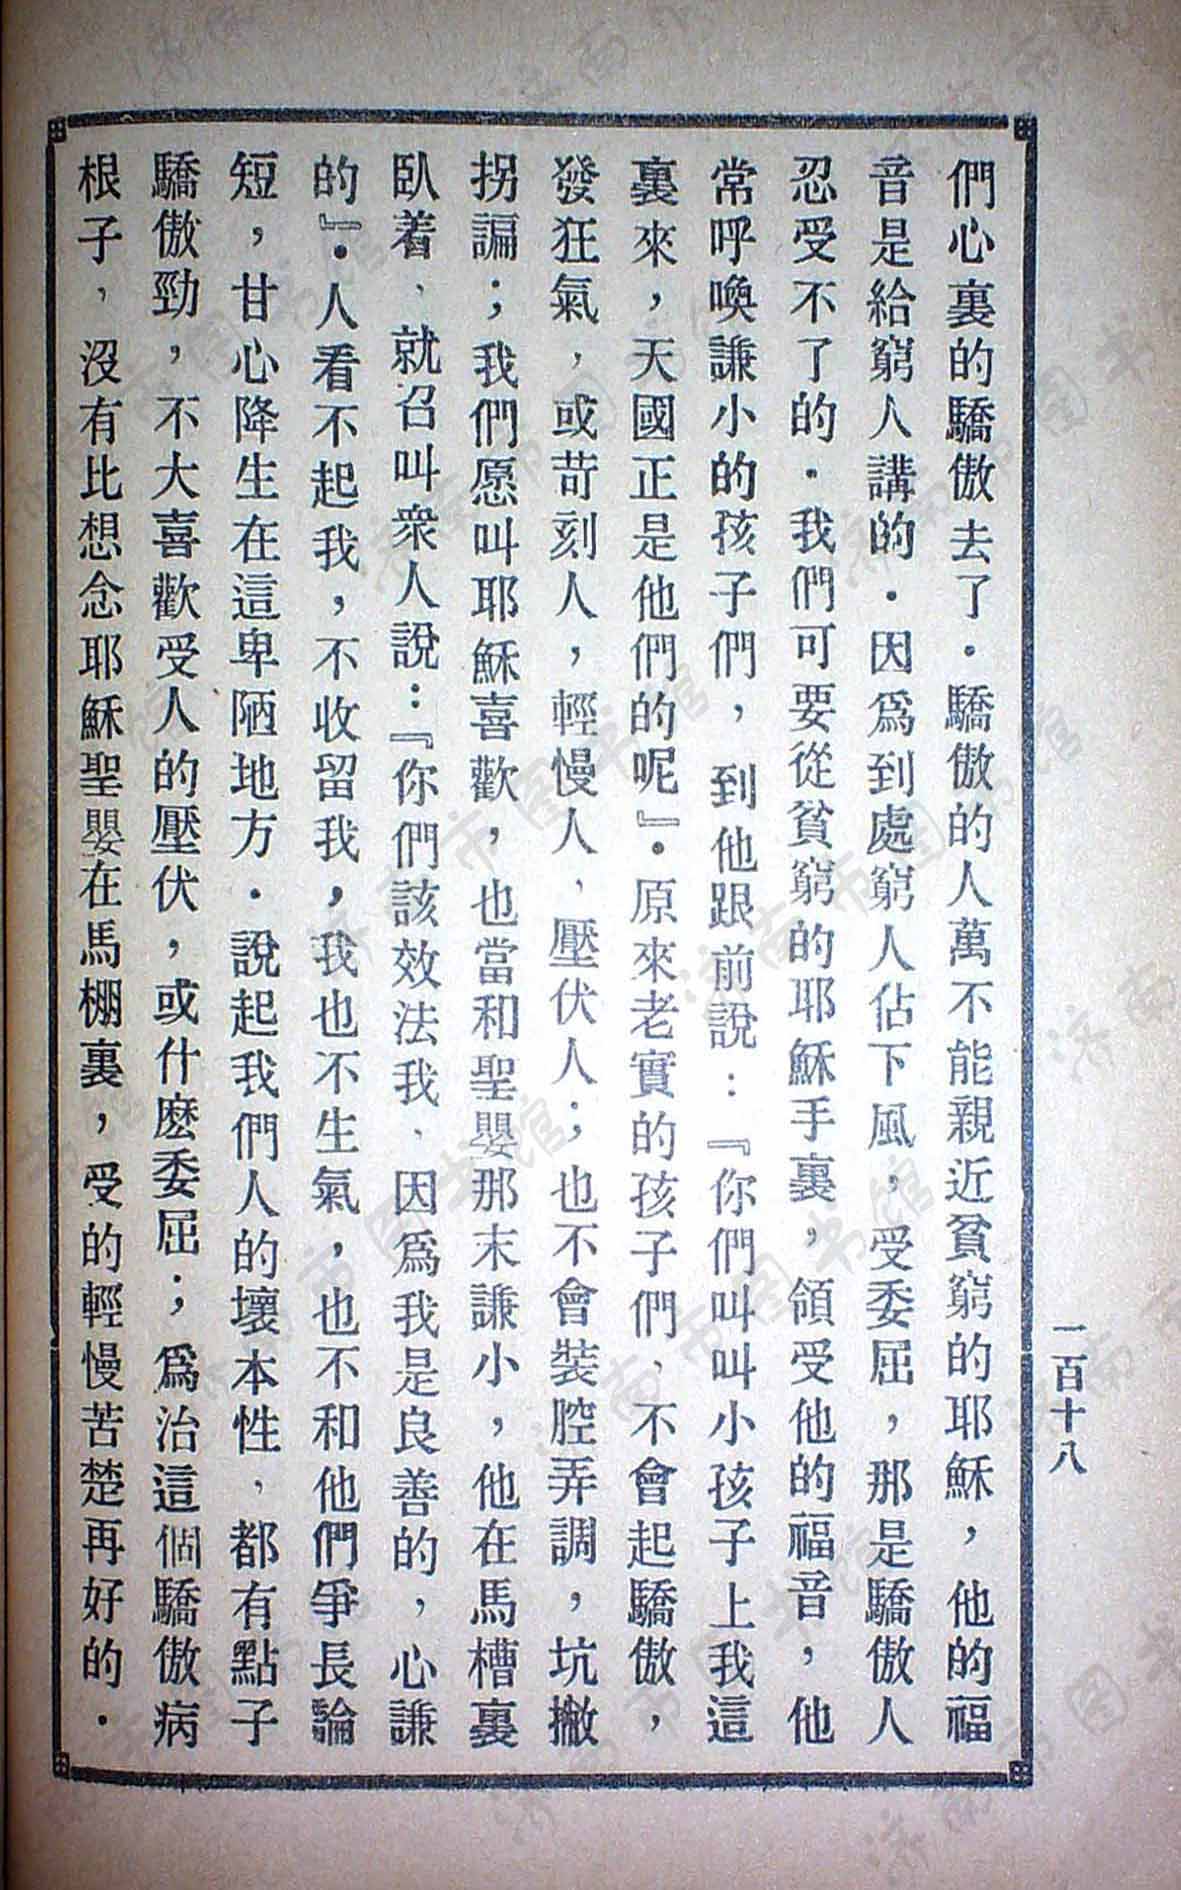 們心裏的驕傲去了．驕傲的人萬不能親近貧窮的耶穌，他的福
音是給窮人講的．因爲到處窮人佔下風，受委屈，那是驕傲人
忍受不了的．我們可要從貧窮的耶穌手裏，領受他的福音，他
常呼喚謙小的孩子們，到他跟前說：『你們叫叫小孩子上我這
裏來，天國正是他們的呢』．原來老實的孩子們、不會起驕傲，
發狂氣，或苛刻人，輕慢人、壓伏人；也不會裝腔弄調，坑撇
拐諞；我們愿叫耶穌喜歡，也當和聖嬰那末謙小，他在馬槽裏
臥着、就召叫衆人說：『你們該效法我、因爲我是良善的，心謙
的』．人看不起我，不收留我，我也不生氣，也不和他們爭長論
短，甘心降生在這卑陋地方．說起我們人的壞本性、都有點子
驕傲勁，不大喜歡受人的壓伏，或什麽委屈；爲治這個驕傲病
根子、沒有比想念耶穌聖嬰在馬棚裏，受的輕慢苦楚再好的．
一百十八
济南市图书馆